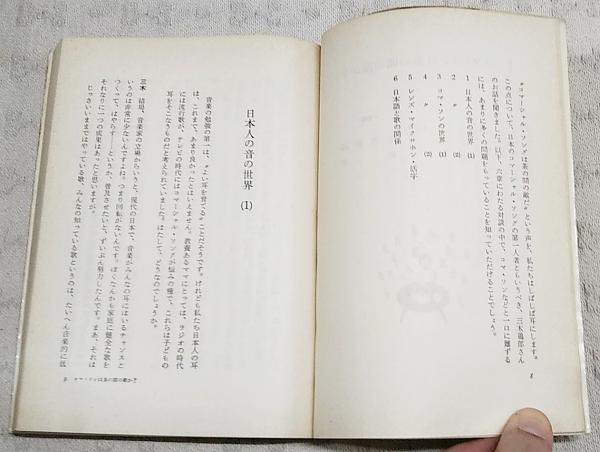 〝コマーシャル・ソングは茶の間の敵だ〟という声を、私たちはしばしば耳にします。
この点について、日本のコマーシャル・ソングの第一人者ともいうべき、三木鶏郎さん
のお話を聞きました。以下、六章にわたる対談の中で、コマ・ソンなどと一口に難ずる
には、あまりに多くの問題をもっていることを知っていただけることでしょう。
1 日本人の音の世界 (1)
2 〃 (2)
3 コマ・ソンの世界 (1)
4 〃 (2)
5 レンズ・マイクロホン・活字
6 日本語と歌の関係
8
日本人の音の世界 (1)
音楽の勉強の第一は、〝よい耳を育てる〟ことだそうです。けれども私たち日本人の耳
は、これまで、あまり良かったとはいえません。教養あるママにとっては、ラジオの時代
には流行歌が、テレビの時代にはコマーシャル・ソングが悩みの種で、これらは子どもの
耳をそこなうものだと考えられていました。はたして、どうなのでしょうか。
三木 結局、音楽家の立場からいうと、現代の日本で、音楽がみんなの耳にはいるチャンスと
いうのは非常に少ないんですよね。つまり回転がないんです。ぼくなんかも家庭に健全な歌を
つくって、はやらす――というか、普及させたいと、ずいぶん努力したんです。まあ、それは
それなりに一つの成果はあったと思いますが。
じっさいいままではやっている歌、みんなの知っている歌というのは、たいへん音楽的に低
9 コマ・ソンは茶の間の敵か?